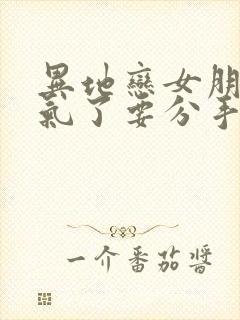 異地戀女朋
氣了要分手
一介番茄醬